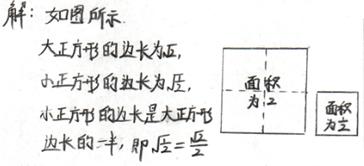 解：如图所示.
大正方形的边长为√2,
小正方形的边长为√½,
小正方形的边长是大正方形
边长的一半，即√½=√2/2
面积
为2
面积
为½